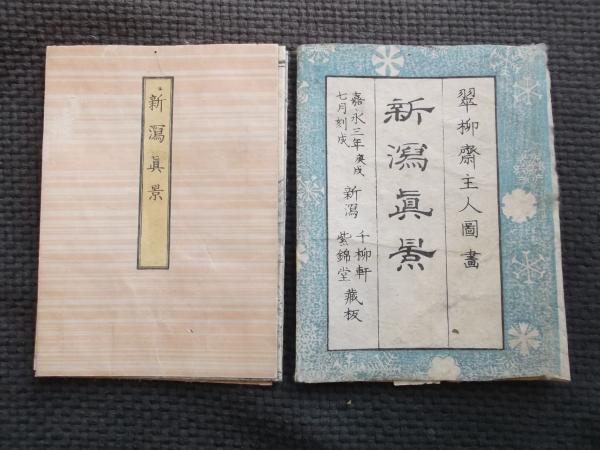 新瀉眞景
翠柳齋主人圖畫
新瀉眞景
嘉永三年庚戌
七月刻成
新瀉
千柳軒
紫錦堂
藏板